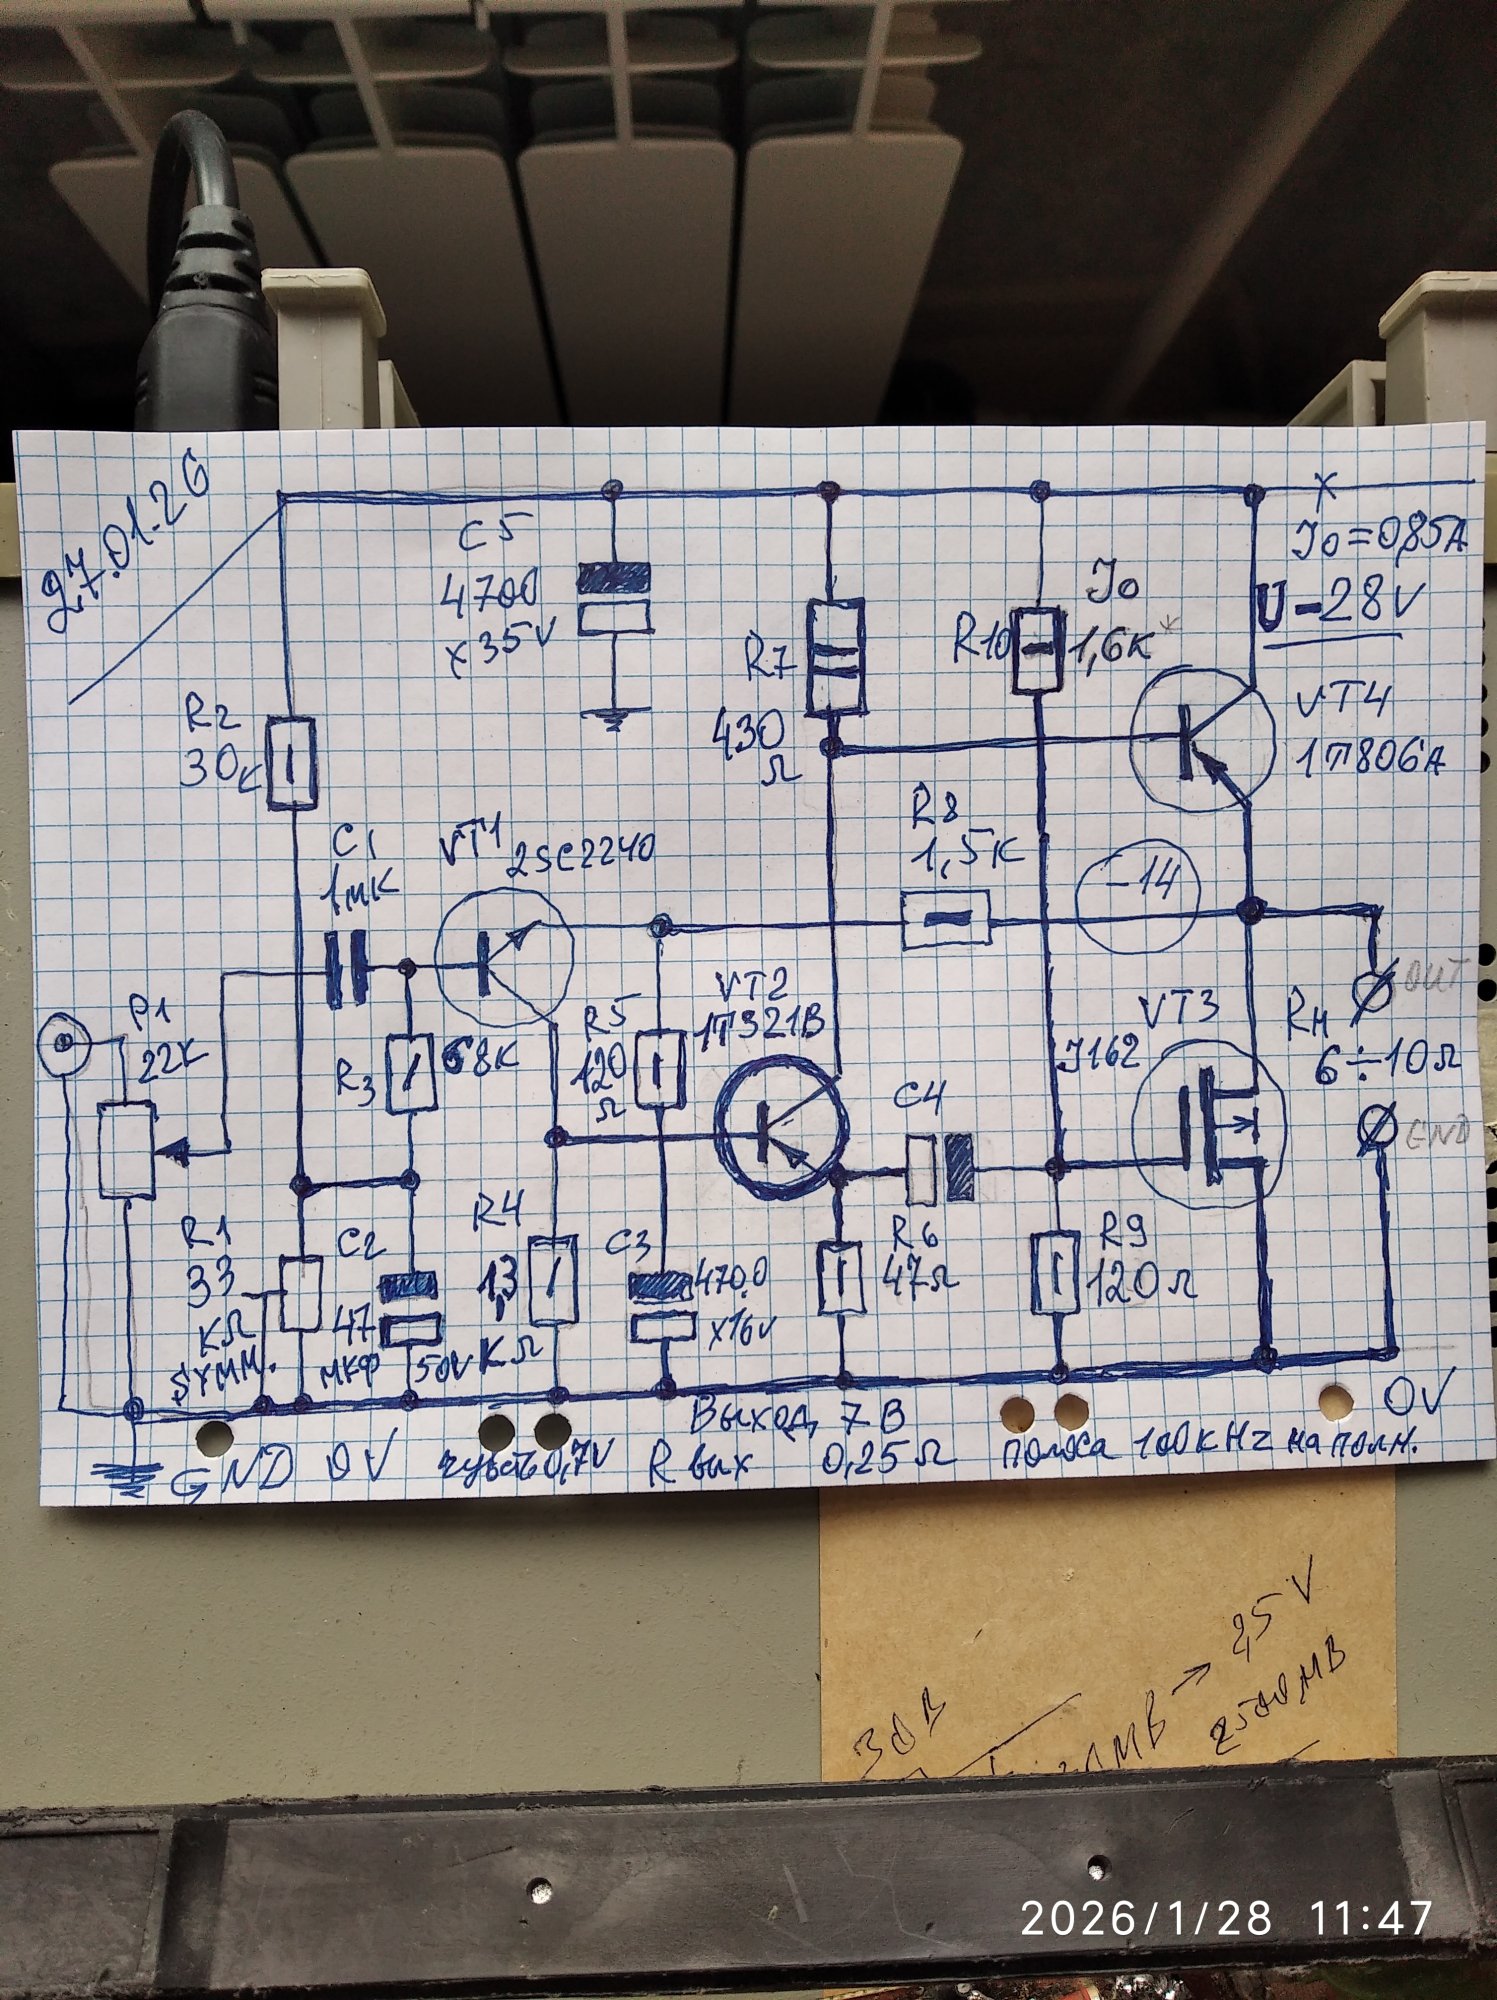 27.01.26
C5
4700
x35V
R2
30к
R7
430
Ω
R10
Jo
1,6к*
x
Jo=0,85A
U-28V
VT4
1T806A
C1
1мк
VT1 2SC2240
R8
1,5к
-14
P1
22K
R3
68K
R5
120
Ω
VT2
1T321B
C4
VT3
J162
OUT
Rн
6÷10Ω
GND
R1
33
KΩ
SYMM.
C2
47
мкф
50V
R4
1,3
KΩ
C3
470,0
x16V
R6
47Ω
R9
120Ω
0V
Выход 7В
GND 0V
0,7V
Rвых 0,25Ω
100kHz на полн.
30В
2,5V
2500мВ
2026/1/28 11:47